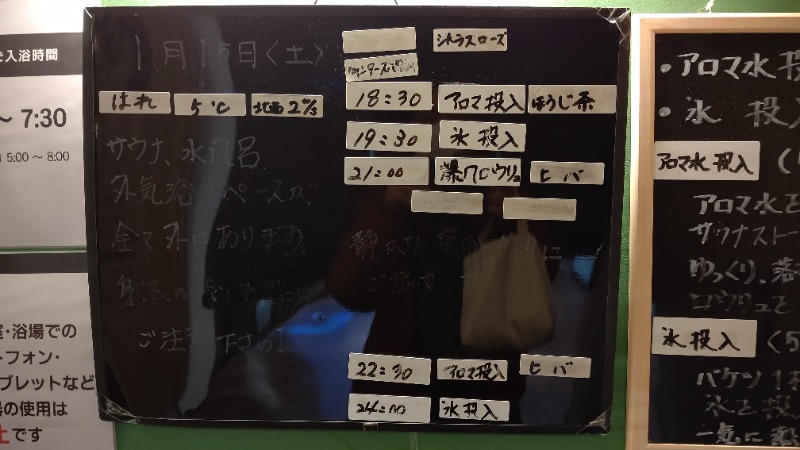 入浴時間
～ 7:30
5:00 ～ 8:00
室・浴場での
ートフォン・
ブレットなど
器の使用は
止です
1月15日〈土〉
はれ 5℃ 北西 2m/s
サウナ、水風呂、
外気浴スペースが
全て外にあります。
身体の
ご注意下さい!
シトラスローズ
18:30 アロマ投入 ほうじ茶
19:30 氷投入
21:00 爆風ロウリュ ヒバ
静かな
ご協力
22:30 アロマ投入 ヒバ
24:00 氷投入
・アロマ水投
・氷 投入
アロマ水投入 (
アロマ水を
サウナストー
ゆっくり、落
ロウリュを
氷投入 〈5
バケツ1
氷を投
一気に蒸